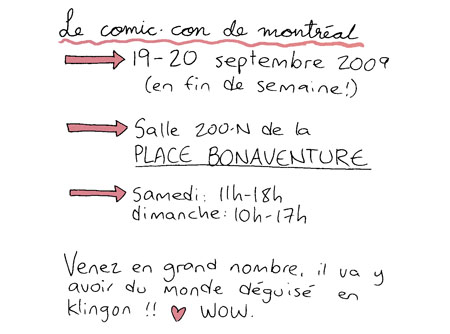 Le comic-con de montréal
19-20 septembre 2009
(en fin de semaine!)
Salle 200-N de la
PLACE BONAVENTURE
samedi: 11h-18h
dimanche: 10h-17h
Venez en grand nombre, il va y
avoir du monde déguisé en
klingon !! ♥ WOW.